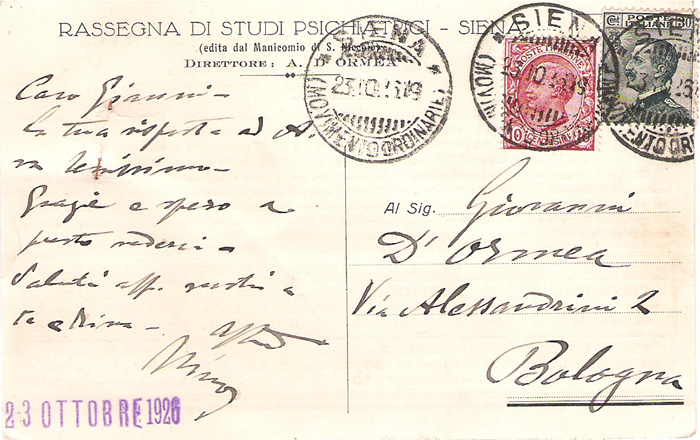 RASSEGNA DI STUDI PSICHIATRICI - SIENA
(edita dal Manicomio di S. Niccolò)
DIRETTORE: A. D'ORMEA
SIENA
23.10.26.19
(MOVIMENTO ORDINARIE)
SIENA
POSTE ITALIANE
10
SIENA
POSTE
30
Caro Gianni -
la tua risposta ad A.
va benissimo -
Grazie e spero a
presto rederci -
Saluti aff.
te e
Nino
Al Sig. Giovanni
D'Ormea
Via Alessandrini 2
Bologna
23 OTTOBRE 1926